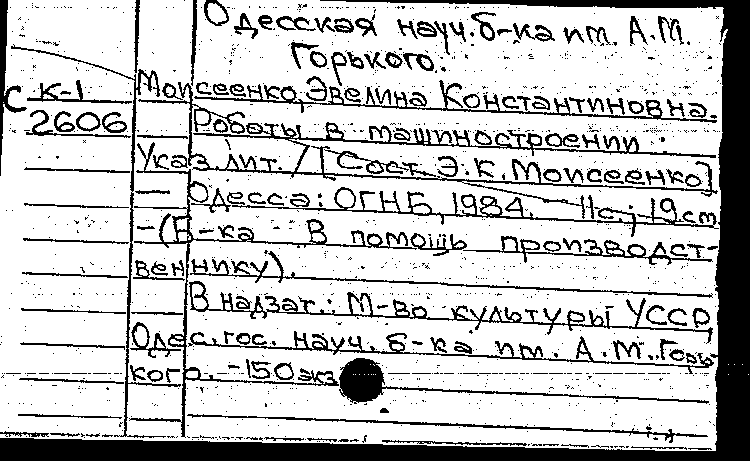 Одесская науч. б-ка им. А.М.
Горького.
С К-1 Моисеенко, Эвелина Константиновна.
2606 Роботы в машиностроении :
Указ. лит. / [Сост. Э.К. Моисеенко]
— Одесса: ОГНБ, 1984. 11с.; 19 см
-(Б-ка В помощь производст-
веннику).
В надзаг.: М-во культуры УССР,
Одес. гос. науч. б-ка им. А.М. Горь-
кого. -150 экз